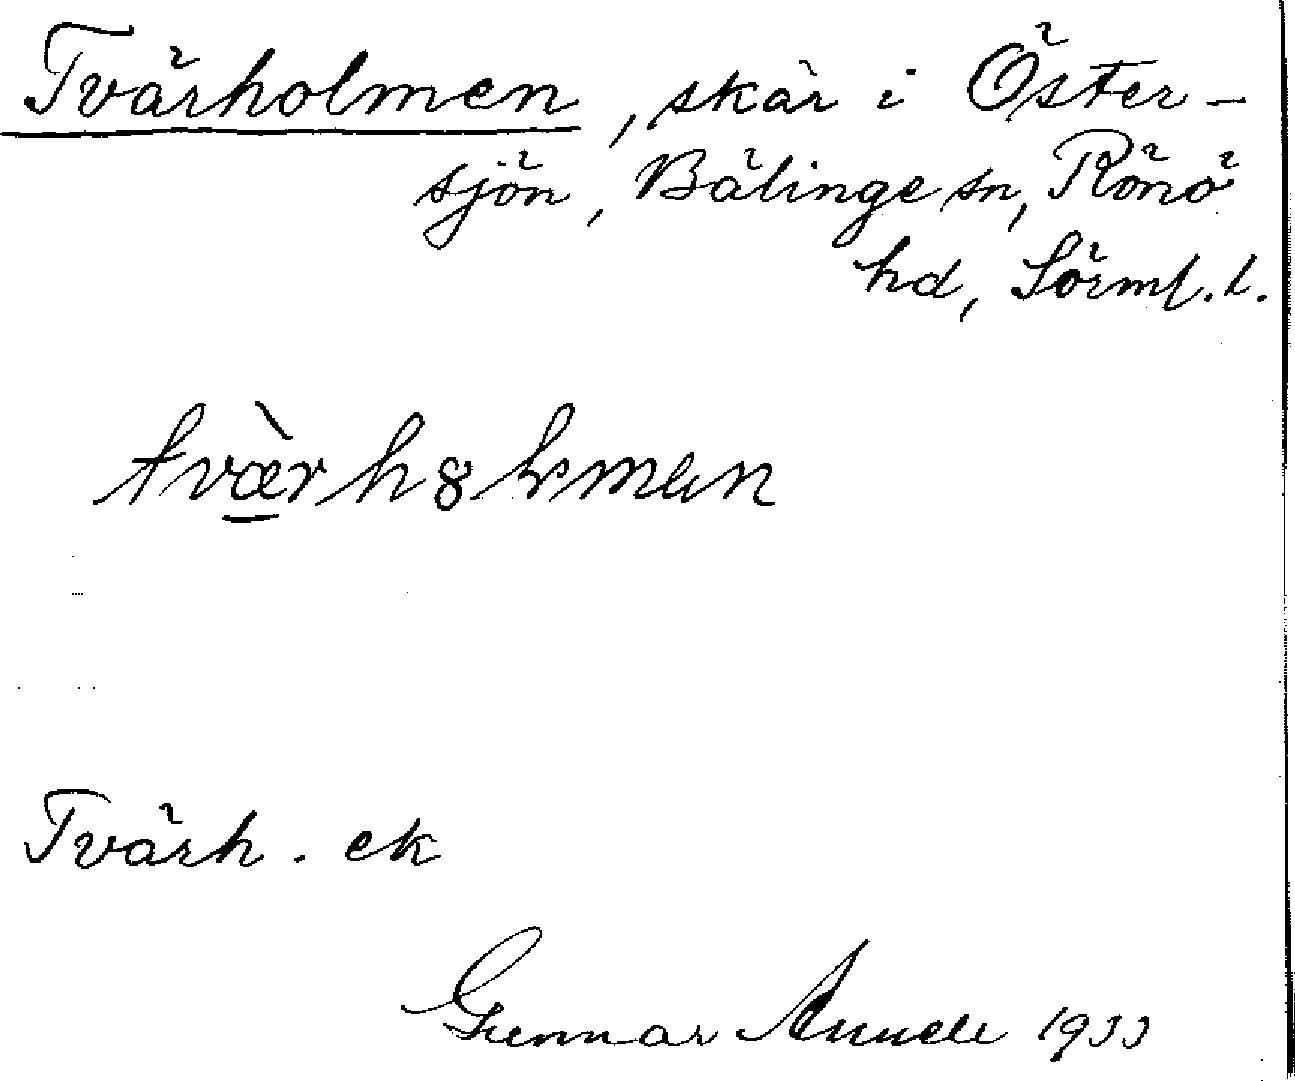 Tvärholmen, skär i Öster-
sjön, Bälinge sn, Rönö
hd, Sörml. l.
tvæ̀rh8lmɘn
Tvärh. ek
Gunnar 1933